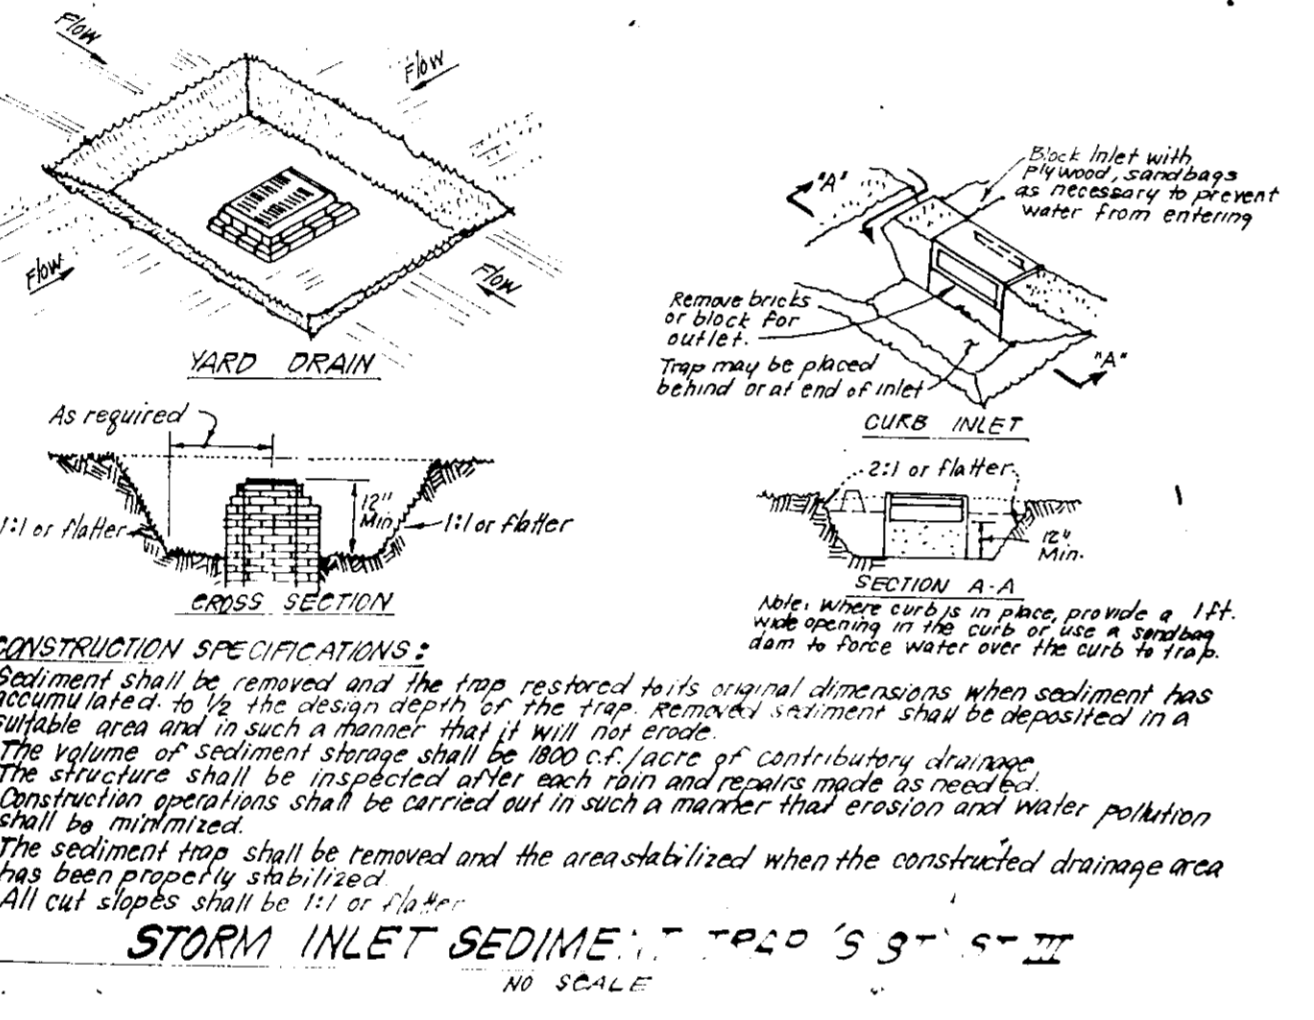 Flow
Flow
Flow
Flow
YARD DRAIN
Block Inlet with
plywood, sandbags
as necessary to prevent
water from entering
"A"
Remove bricks
or block for
outlet.
Trap may be placed
behind or at end of inlet
"A"
CURB INLET
As required
12"
Min.
1:1 or flatter
1:1 or flatter
CROSS SECTION
2:1 or flatter
12"
Min.
SECTION A-A
Note: Where curb is in place, provide a 1 ft.
wide opening in the curb or use a sandbag
dam to force water over the curb to trap.
CONSTRUCTION SPECIFICATIONS:
Sediment shall be removed and the trap restored to its original dimensions when sediment has
accumulated. to 1/2 the design depth of the trap. Removed sediment shall be deposited in a
suitable area and in such a manner that it will not erode.
The volume of sediment storage shall be 1800 c.f./acre of contributory drainage
The structure shall be inspected after each rain and repairs made as needed.
Construction operations shall be carried out in such a manner that erosion and water pollution
shall be minimized.
The sediment trap shall be removed and the area stabilized when the constructed drainage area
has been properly stabilized.
All cut slopes shall be 1:1 or flatter
STORM INLET SEDIMENT TRAP III
NO SCALE